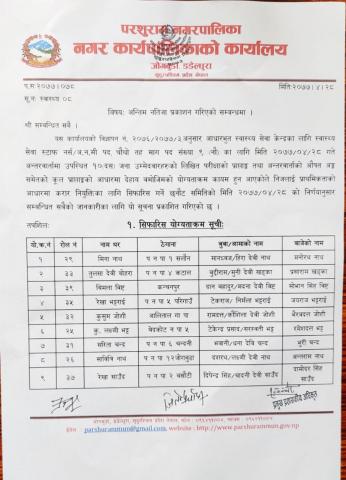 परशुराम नगरपालिका
नगर कार्यपालिकाको कार्यालय
जोगबुडा, डडेल्धुरा
सुदूरपश्चिम प्रदेश नेपाल
प.स २०७७।०७८
मिति:२०७७।४।२८
सू.नः स्वास्थ्य ०८
विषयः अन्तिम नतिजा प्रकाशन गरिएको सम्बन्धमा ।
श्री सम्बन्धित सबै ।
यस कार्यालयको विज्ञापन नं. २०७६/२०७७/३ अनुसार आधारभुत स्वास्थ्य सेवा केन्द्रका लागि स्वास्थ्य
सेवा स्टाफ नर्स/अ.न.मी पद, चौथो तह माग पद संख्या ९ (नौ) का लागि मिति २०७७/०४/२८ गते
अन्तरवार्तामा उपस्थित १०(दस) जना उम्मेदवारहरुको लिखित परीक्षाको प्राप्ताङ्क तथा अन्तरवार्ताको औषत अङ्क
समेतको कुल प्राप्ताङ्कको आधारमा देहाय बमोजिमको योग्यताक्रम कायम हुन आएकोले निजलाई प्राथमिकताको
आधारमा करार नियुक्तिका लागि सिफारिस गर्ने छनौट समितिको मिति २०७७/०४/२८ को निर्णयानुसार
सम्बन्धित सबैको जानकारीका लागि यो सूचना प्रकाशित गरिएको छ ।
तपशिलः
१. सिफारिस योग्यताक्रम सूचीः
यो.क्र.नं रोल नं नाम थर ठेगाना बुवा/आमाको नाम बाजेको नाम
१ २९ मिना नाथ प न पा १ सर्लौन मानध्वज/हिरा देवी नाथ मनोरथ नाथ
२ ३३ तुलसा देवी बोहरा प न पा ४ कटाल बुद्दीराम/मुनी देवी खड्का प्रसाराम खड्का
३ ३९ विमला विष्ट कञ्चनपुर दल बहादुर/मदना देवी विष्ट सोभान सिंह विष्ट
४ ३५ रेखा भट्टराई प न पा ५ परिगाउँ टेकराज/निर्मला भट्टराई जयराज भट्टराई
५ ३२ कुसुम जोशी आलिताल गा पा रामदत्त/कौशिला देवी जोशी भैरवदत्त जोशी
६ २५ कु. लक्ष्मी भट्ट बेदकोट न पा ५ टेकेन्द्र प्रसाद/सरस्वती भट्ट रमेशदत्त भट्ट
७ ३१ सरिता चन्द प न पा २ चमौटी भवानी/धना देवि चन्द भुरी चन्द
८ २६ सावित्रि नाथ प न पा १२जोगबुढा दशरथ/लक्ष्मी देवी नाथ
९ ३७ रेखा साउँद प न पा २ चमौटी दिपेन्द्र सिंह/चादनी देवी साउँद दामोदर सिंह साउँद
प्रमुख प्रशासकीय अधिकृत
जोगबुडा, डडेल्धुरा, सुदूरपश्चिम प्रदेश नेपाल
ईमेल : parshurammun@gmail.com, website : http://www.parshurammun.gov.np